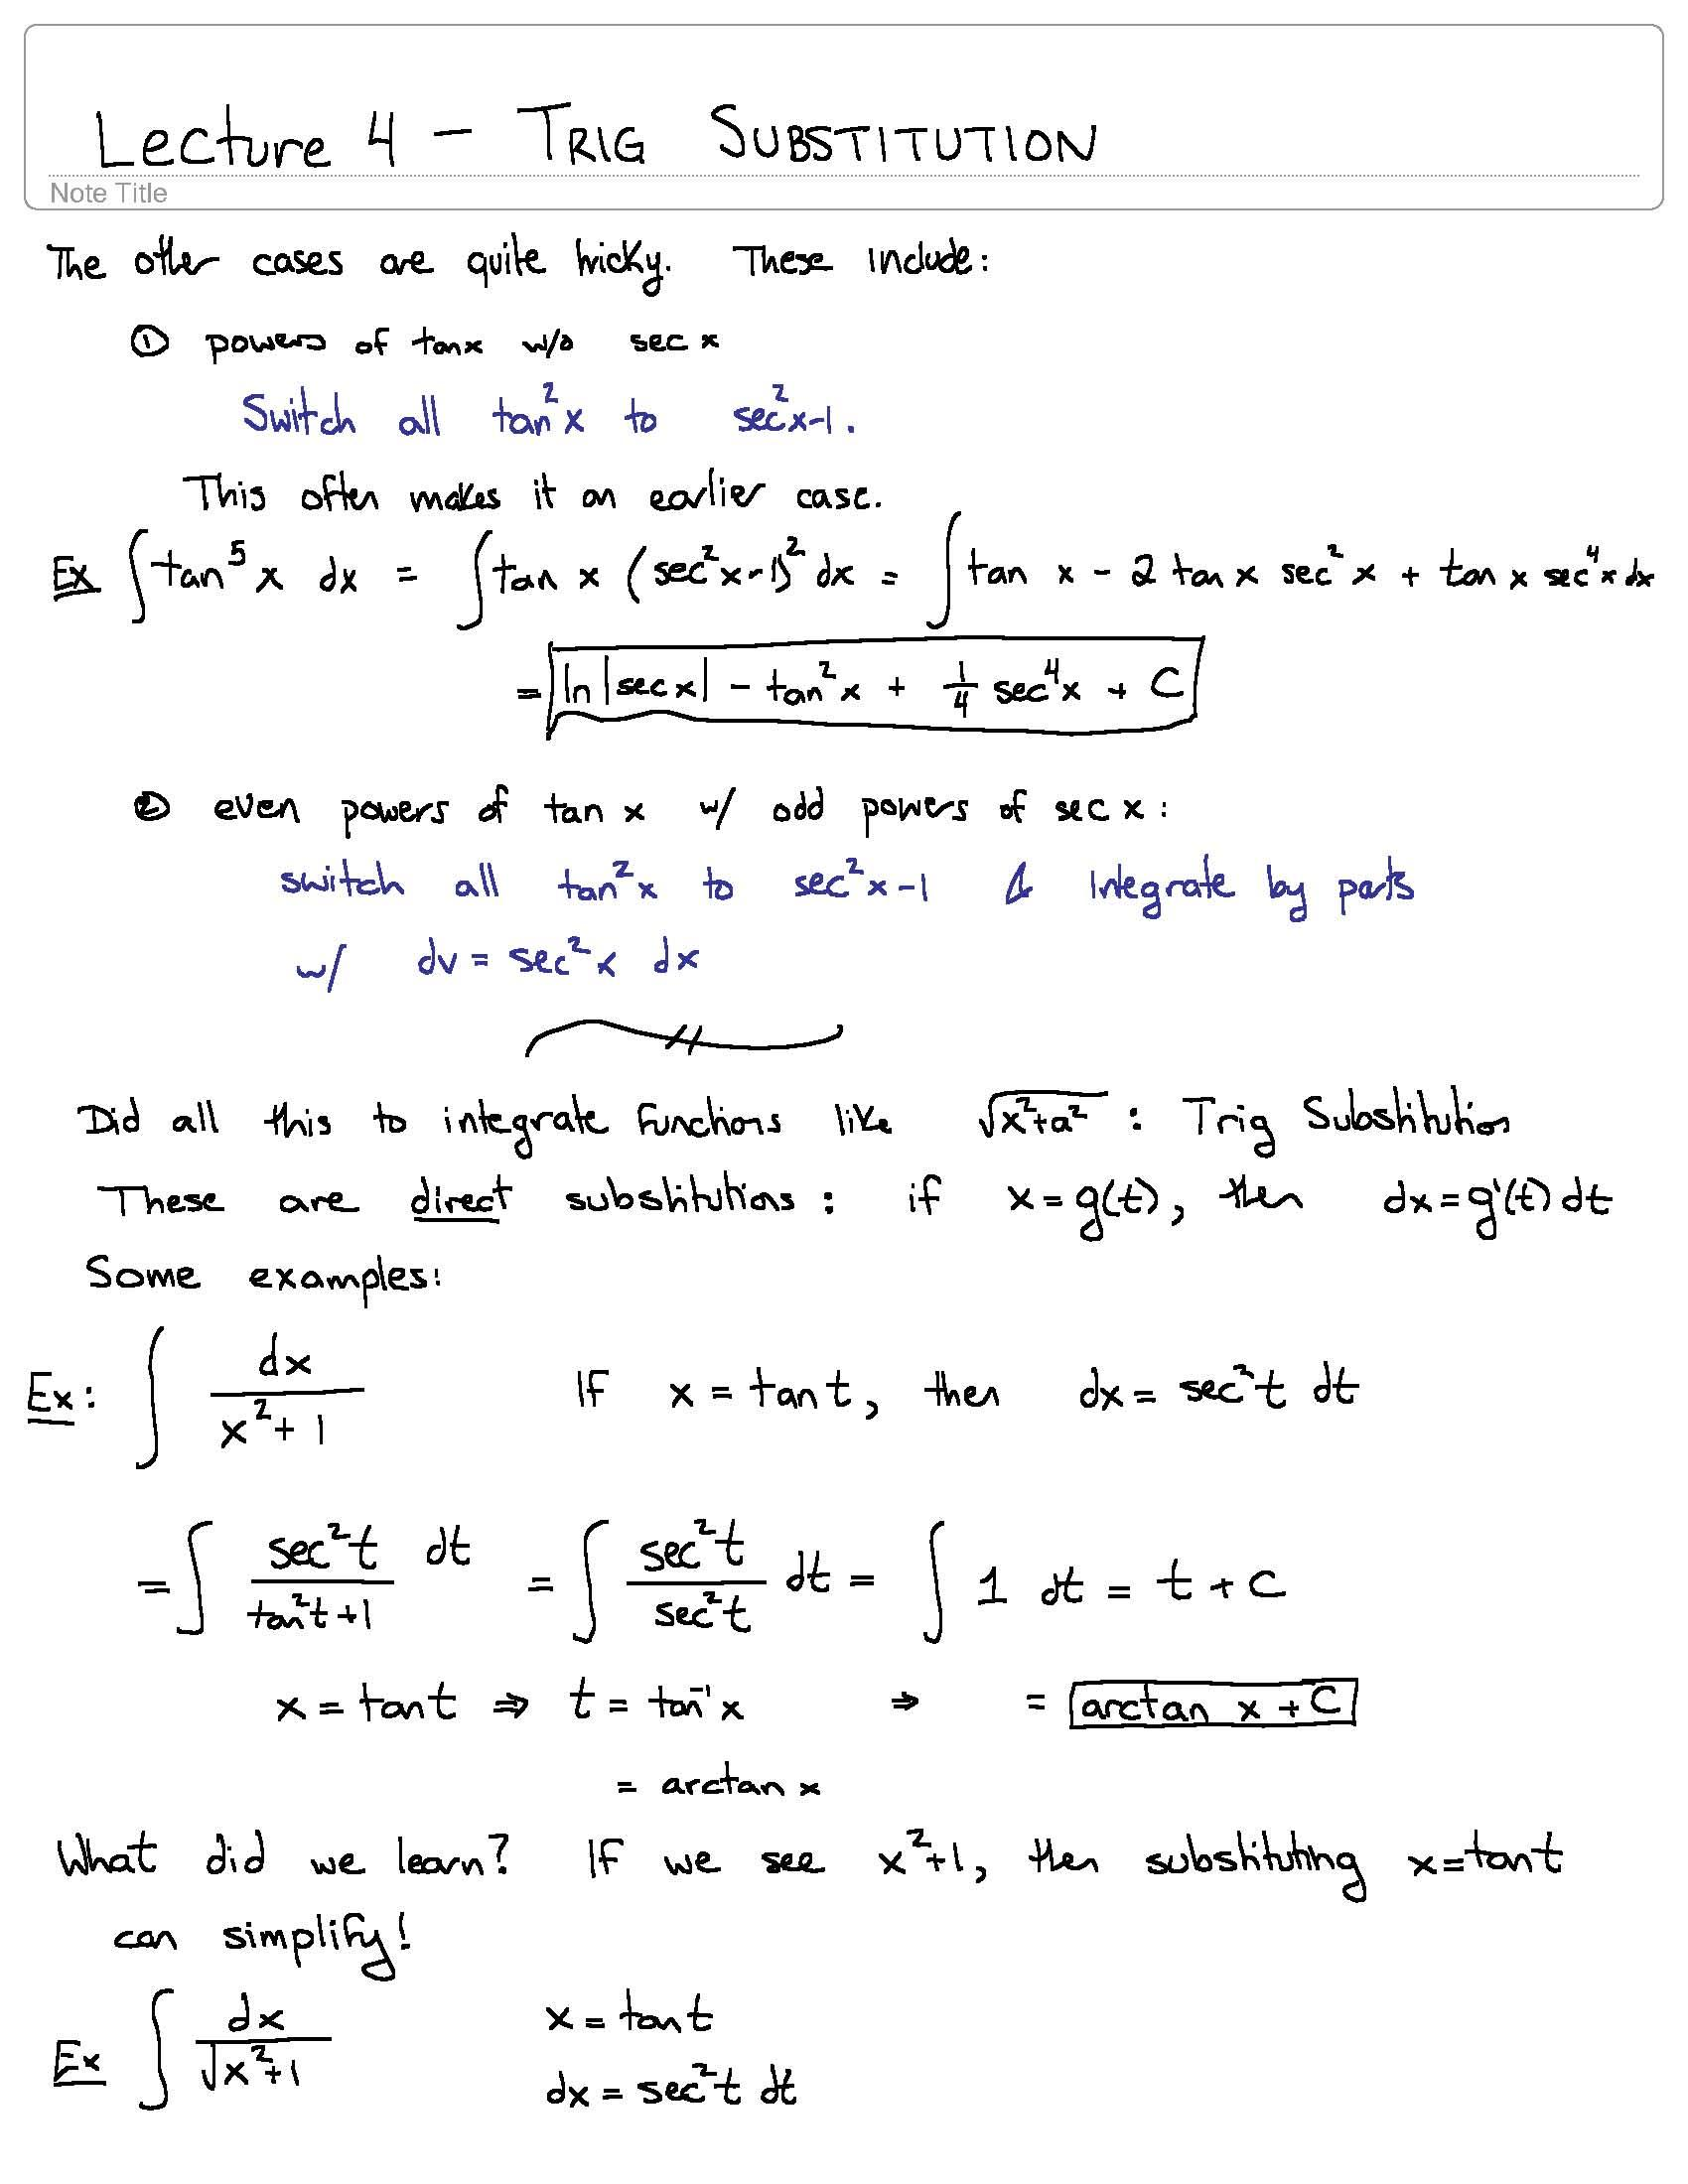 Lecture 4 – TRIG SUBSTITUTION
Note Title
The other cases are quite tricky. These include:
① powers of tan x w/o sec x
Switch all tan²x to sec²x-1.
This often makes it an earlier case.
Ex ∫ tan⁵x dx = ∫ tan x (sec²x-1)² dx = ∫ tan x - 2 tan x sec²x + tan x sec⁴x dx
= ln|sec x| - tan²x + 1/4 sec⁴x + C
② even powers of tan x w/ odd powers of sec x:
switch all tan²x to sec²x-1 & integrate by parts
w/ dv = sec²x dx
Did all this to integrate functions like √(x²+a²) : Trig Substitution
These are direct substitutions: if x = g(t), then dx = g'(t) dt
Some examples:
Ex: ∫ dx/(x²+1) If x = tan t, then dx = sec²t dt
= ∫ sec²t/(tan²t+1) dt = ∫ sec²t/sec²t dt = ∫ 1 dt = t + C
x = tan t ⇒ t = tan⁻¹x ⇒ = arctan x + C
= arctan x
What did we learn? If we see x²+1, then substituting x = tan t
can simplify!
Ex ∫ dx/√(x²+1) x = tan t
dx = sec²t dt